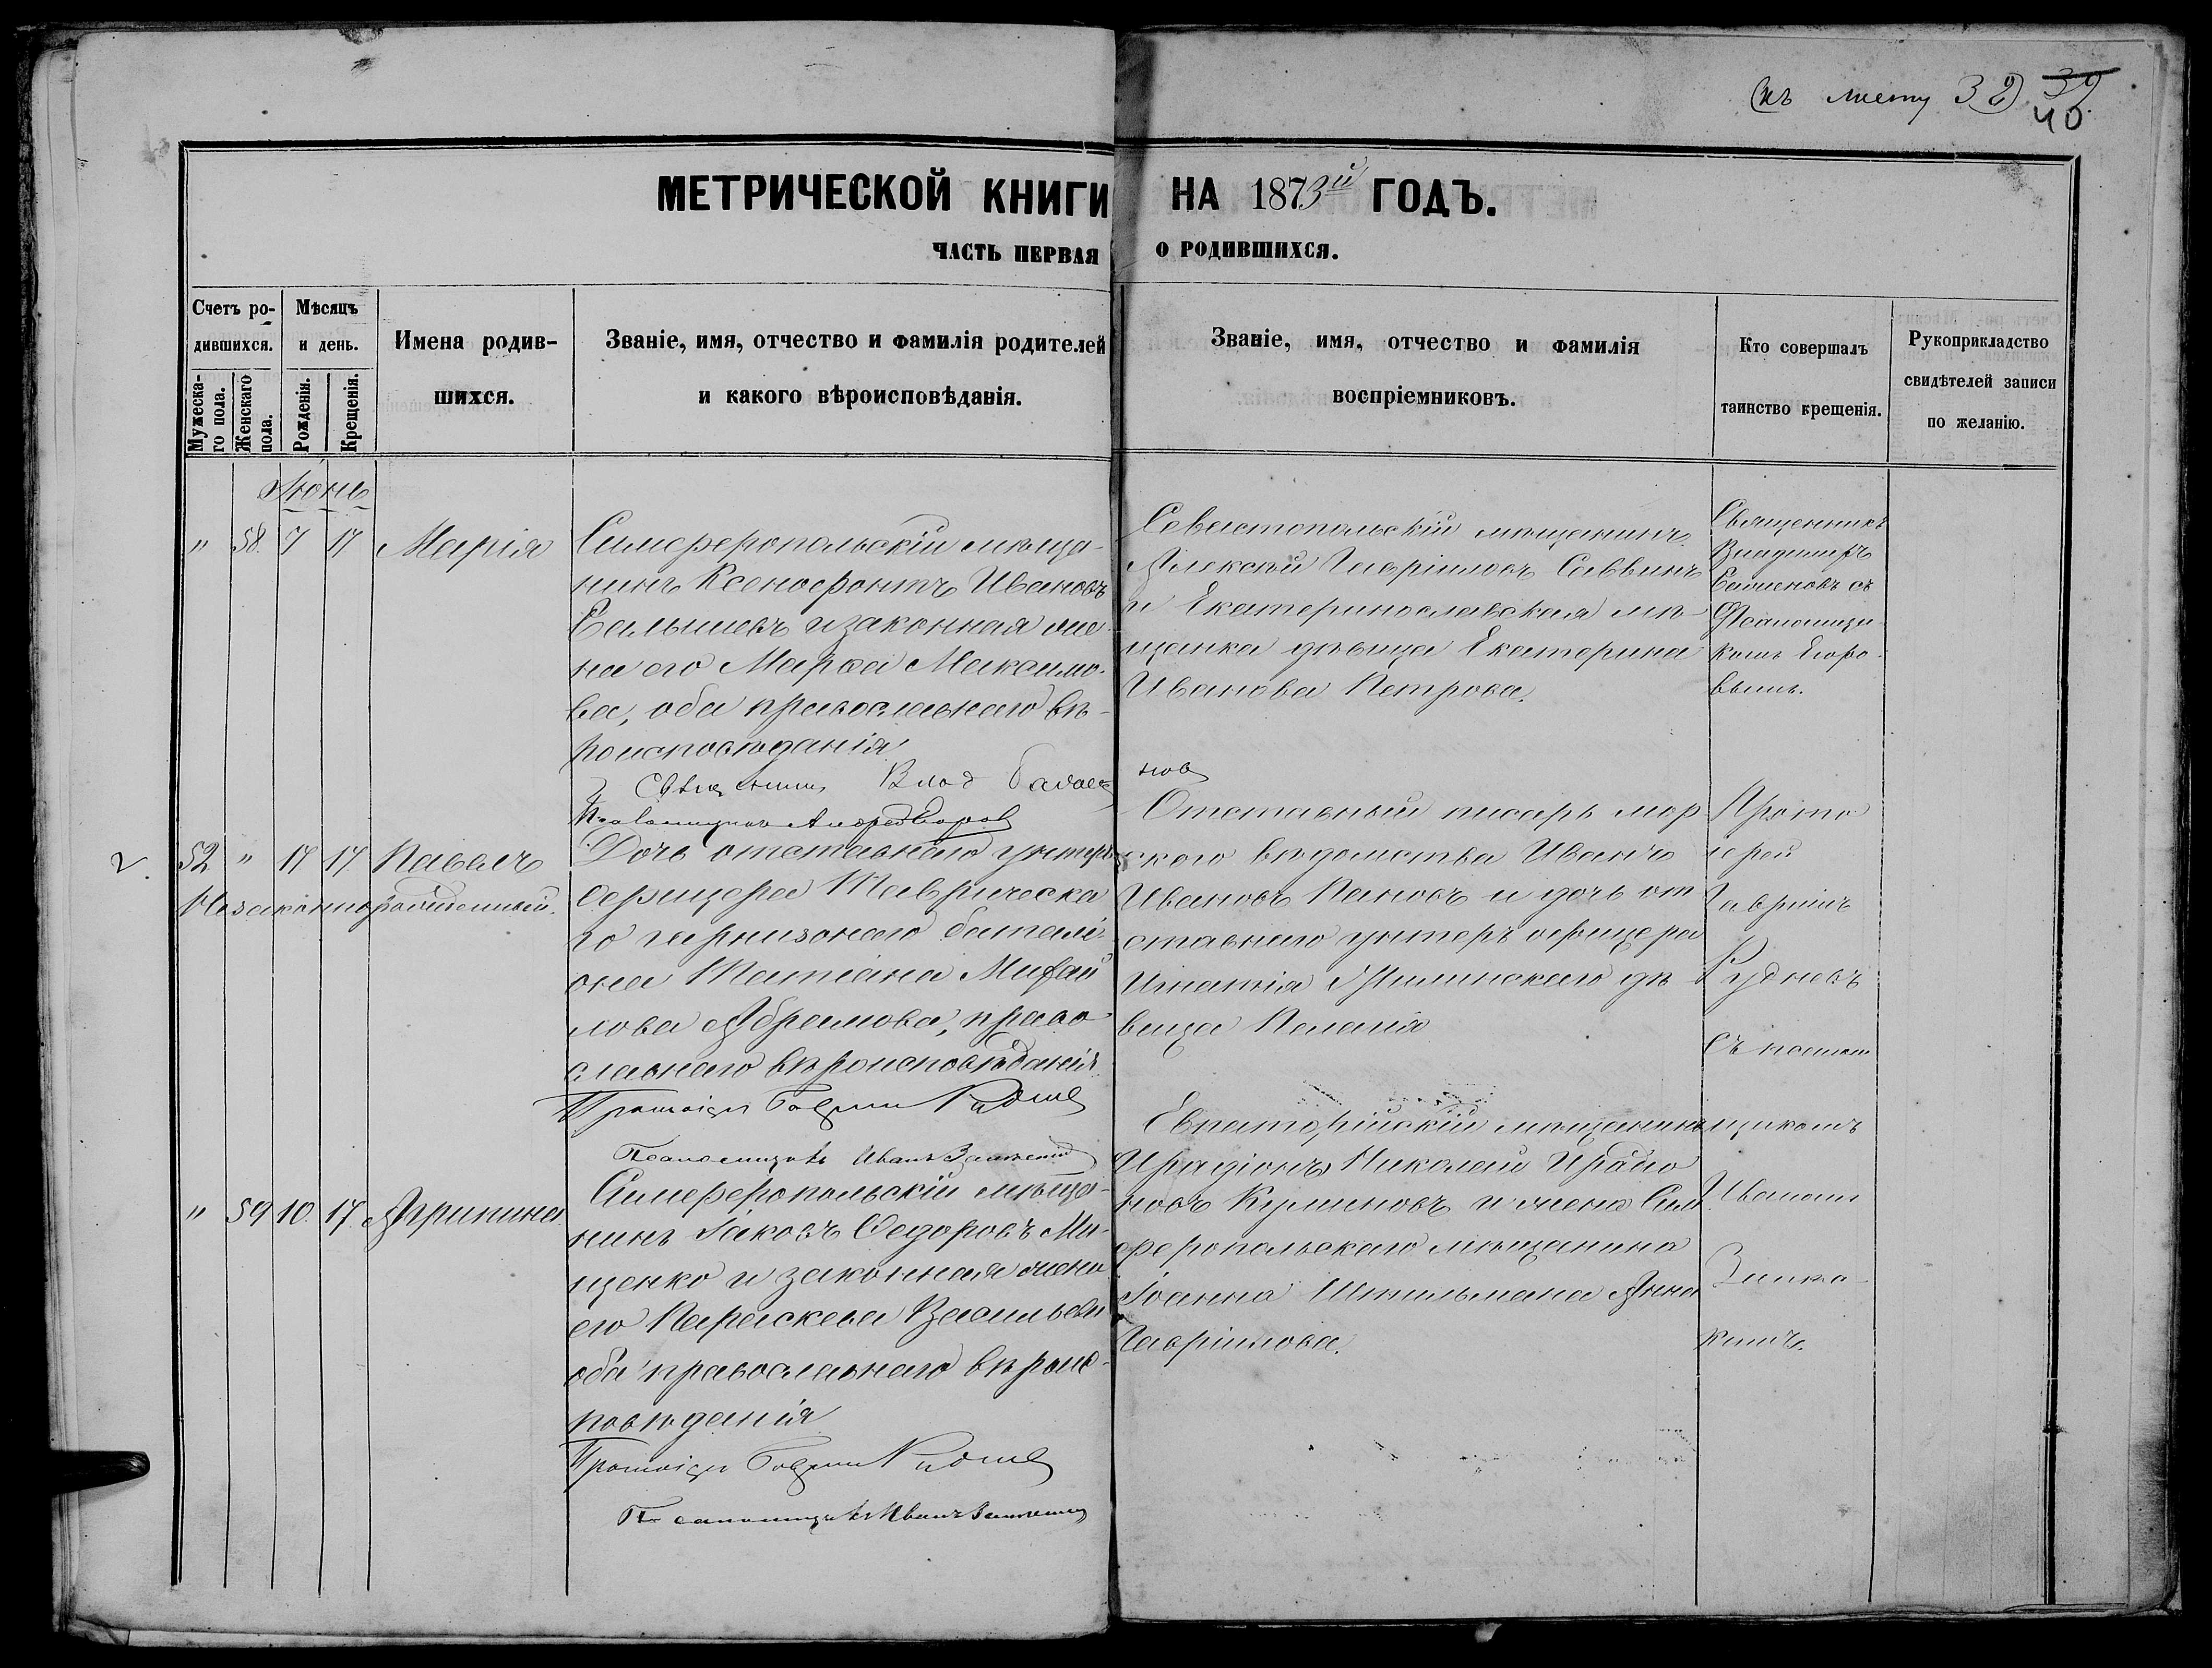 (къ листу 32) 39
40
МЕТРИЧЕСКОЙ КНИГИ НА 1873й ГОДЪ.
ЧАСТЬ ПЕРВАЯ О РОДИВШИХСЯ.
Счетъ ро-
дившихся.
Мужеска-
го пола.
Женскаго
пола.
Мѣсяцъ
и день.
Рожденія.
Крещенія.
Имена родив-
шихся.
Званіе, имя, отчество и фамилія родителей
и какого вѣроисповѣданія.
Званіе, имя, отчество и фамилія
воспріемниковъ.
Кто совершалъ
таинство крещенія.
Рукоприкладство
свидѣтелей записи
по желанію.
Іюнь
" 58. 7 17 Марія
Симферопольскій мѣща-
нинъ Ксенофонтъ Ивановъ
и законная же-
на его Марѳа Максимо-
ва, оба православнаго вѣ-
роисповѣданія
Священникъ Влад
нов
Псаломщикъ Андрей Егоров
Севастопольскій мѣщанинъ
Алексѣй Гавріиловъ Саввинъ
и Екатеринославская мѣ-
щанка дѣвица Екатерина
Иванова Петрова.
Священникъ
Владимиръ
съ
Псаломщи-
комъ Егоро-
вымъ.
2. 52 " 17 17 Павелъ
Незаконнорожденный.
Дочь отставнаго унтеръ
офицера Таврическа
го гарнизонаго баталі-
она Татіана Михай
лова Абрамова, право
славнаго вѣроисповѣданія
Протоіерей Гавріилъ Руднев
Псаломщикъ Иванъ
Отставный писарь мор
ского вѣдомства Иванъ
Ивановъ Пановъ и дочь от
ставнаго унтеръ офицера
Игнатія дѣ
вица Пелагія
Прото
іерей
Гавріилъ
Рудневъ
съ псалом
щикомъ
Иваномъ
" 59 10. 17. Агрипина
Симферопольскій мѣща-
нинъ Іаковъ Ѳедоровъ Ми-
щенко и законная жена
его Параскева Васильева
оба православнаго вѣроис-
повѣданія
Протоіерей Гавріилъ Руднев
Псаломщикъ Иванъ
Евпаторійскій мѣщанинъ
Николай
новъ и жена Сим
феропольскаго мѣщанина
Іоанна Штильмана Анна
Гавріилова.